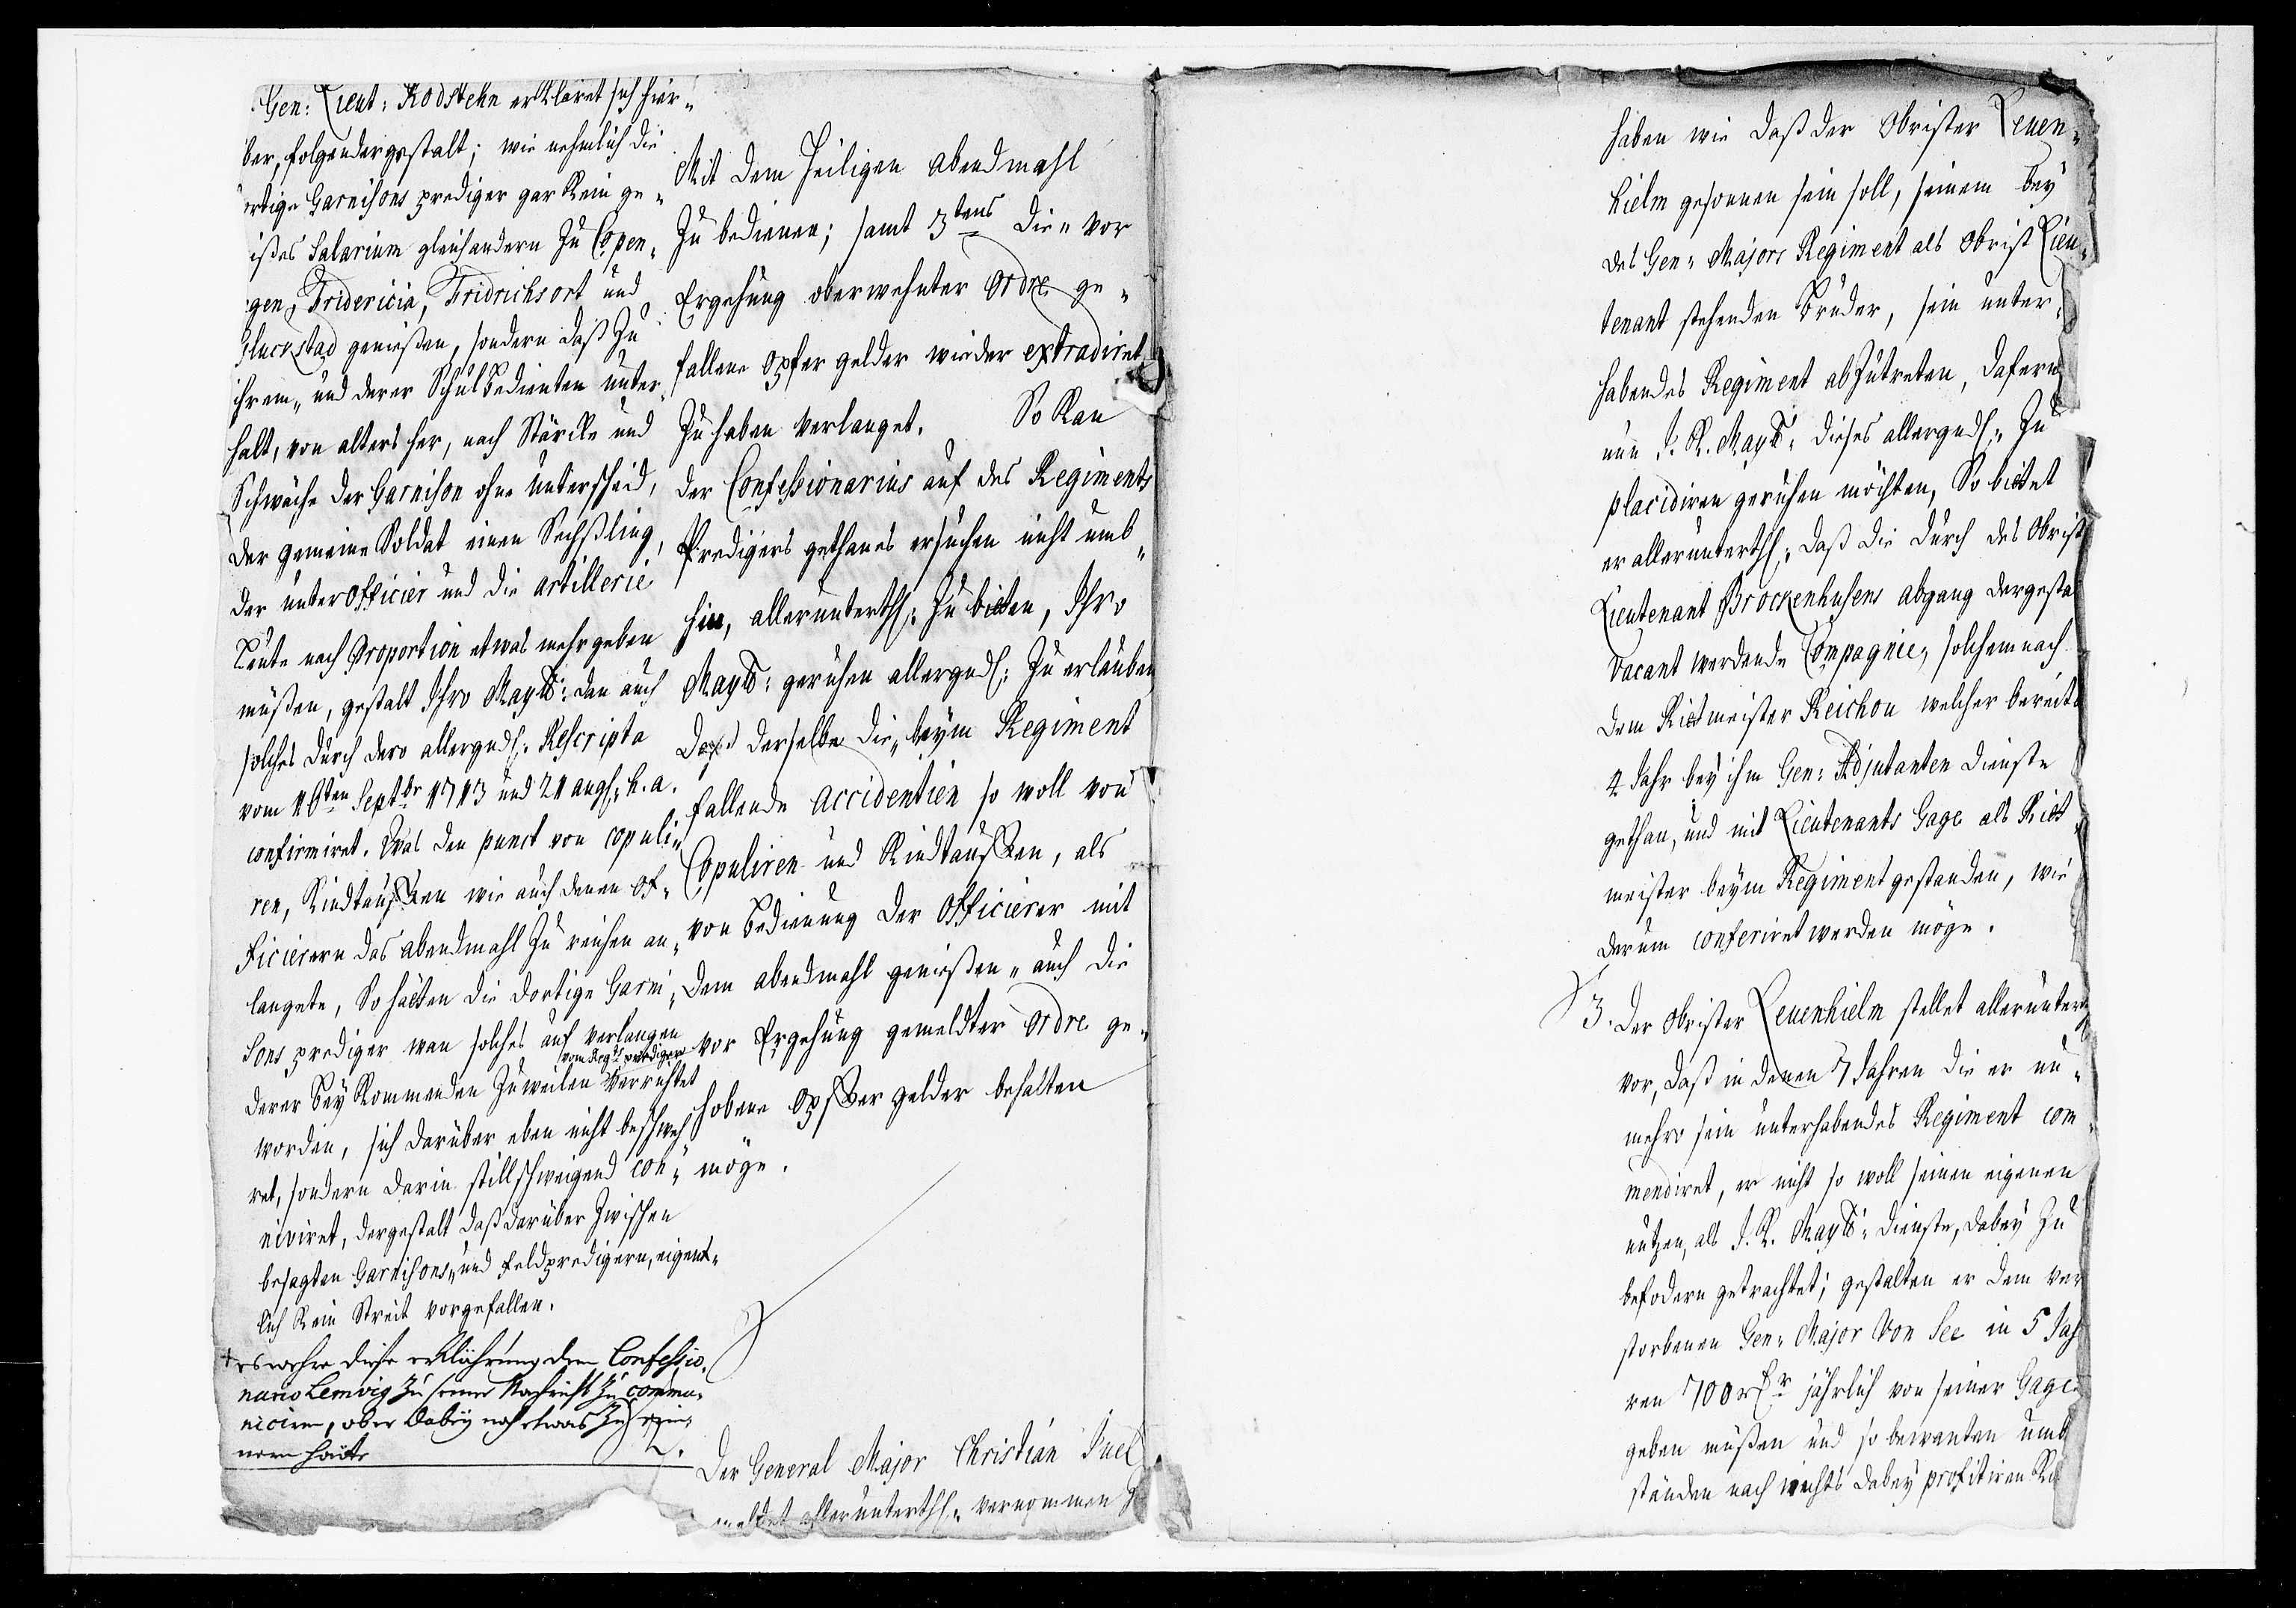 Gen: Lieut: Rodstehn erkläret sich hier-
ber, folgendergestalt; wie nehmlich die
ortige Garnisons prediger gar kein ge-
ißes Salarium gleich andern zu Copen-
gen, Fridericia, Fridrichsort und
Gluckstad genießen, sondern daß zu
ihrem, und derer Schulbedienten unter-
halt, von alters her, nach Stärcke und
Schwäche der Garnison ohne unterscheid,
der gemeine Soldat einen Sechßling,
der unterofficier und die artillerie
Leute nach Proportion etwas mehr geben
müßen, gestalt Ihro Maytt: den auch
solches durch dero allergndst: Rescripta
vom 16ten Septbr 1713 und 21 augst: h. a.
confirmiret. Was den punct von copuli-
ren, Kindtauffen wie auch denen of-
ficierern das abendmahl zu reichen an-
langete, So hätten die dortige Garni-
sons prediger wan solches auf verlangen
vom Regts prediger
derer Beykommenden zuweilen verrichtet
worden, sich darüber eben nicht beschweh-
ret, sondern darin stillschweigend con-
niviret, dergestalt daß darüber zwischen
besagten Garnisons- und feldpredigern, eigent-
lich kein Streit vorgefallen.
+ es wehre diese erklährung dem Confessio-
nario Lemvig zu seiner Nachricht zu commu-
niciren, ob er dabey noch etwas zu erin-
nern hätte
Mit dem Heiligen abendmahl
zu bedienen; samt 3tens die vor
Ergehung oberwehnter ordre ge-
fallene opfer gelder wieder extradiret
zu haben verlanget. So kan
der Confessionarius auf des Regiments
Predigers gethanes ersuchen nicht umb-
hin, allerunterth: zu bitten, Ihro
Maytt: geruhen allergndst: zu erlauben
daß derselbe die beym Regiment
fallende accidentien so woll von
Copuliren und Kindtauffen, als
von bedienung der officierer mit
dem abendmahl genießen, auch die
vor Ergehung gemeldter ordre ge-
hobene opffer gelder behalten
möge.
2. Der General Major Christian Juel
meldet allerunterth: vernommen zu
haben wie daß der Obrister Leuen-
hielm gesonnen sein soll, seinem bey
des Gen: Majors Regiment als Obrist Lieu-
tenant stehenden Bruder, sein unter-
habendes Regiment abzutreten, dafern
nun I. K. Maytt: dieses allergndst: zu
placidiren geruhen möchten, So bittet
er allerunterth: daß die durch des Obrist
Lieutenant Brockenhusens abgang dergestal
vacant werdende Compagnie, solchemnach
dem Rittmeister Reichou welcher bereits
4 Jahr bey ihm Gen: Adjutanten dienste
gethan, und mit Lieutenants Gage als Ritt-
meister beym Regiment gestanden, wie-
derum conferiret werden möge.
3. Der Obrister Leuenhielm stellet allerunterth
vor, daß in denen 7 Jahren die er nu-
mehro sein unterhabendes Regiment com-
mendiret, er nicht so woll seinen eigenen
nutzen, als I. K. Maytt: dienste, dabey zu
befodern getrachtet; gestalten er dem ver
storbenen Gen: Major von See in 5 Jah
ren 700 rthr jährlich von seiner Gage
geben müßen und so bewanten umb
ständen nach nichts dabey profitiren kö